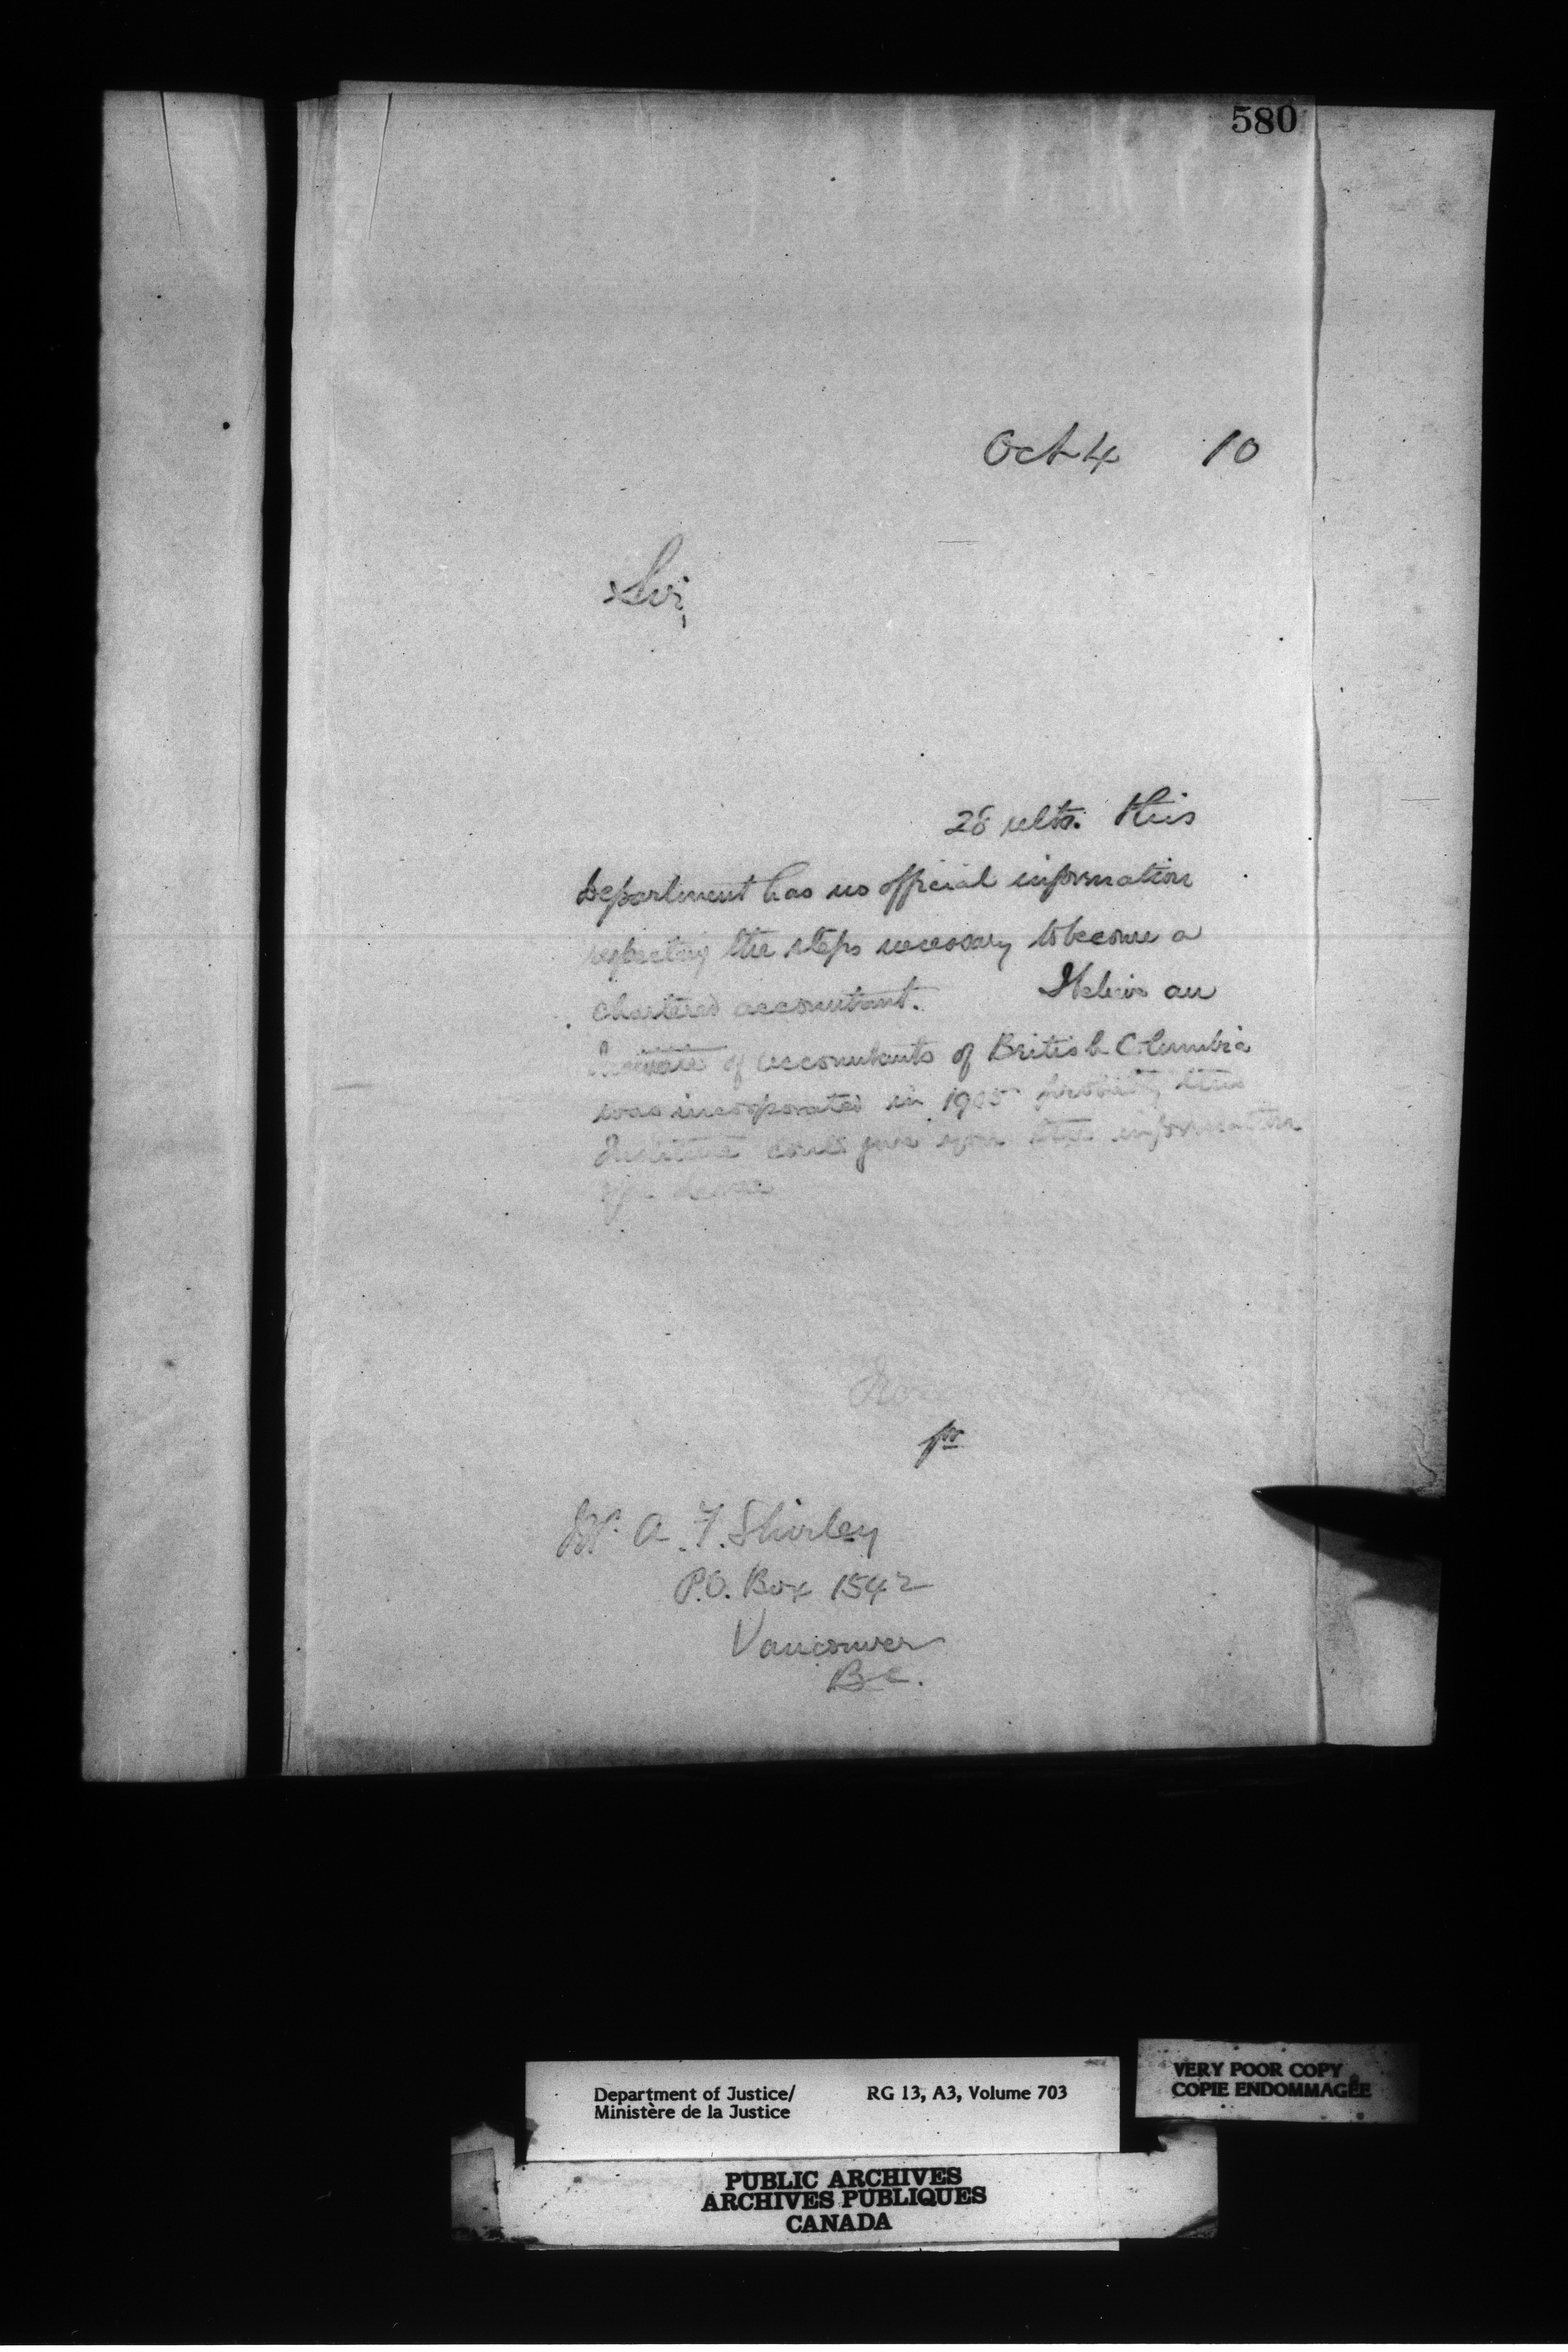 580
Oct 4 10
Sir,
28 ulto. this
Department has no official information
respecting the steps necessary to become a
chartered accountant. I believe an
Institute of accountants of British Columbia
was incorporated in 1905 probably this
Institute could give you the information
pr
Mr. A. F. Shirley
P.O. Box 1542
Vancouver
B.C.
Department of Justice/
Ministère de la Justice
RG 13, A3, Volume 703
VERY POOR COPY
COPIE ENDOMMAGÉE
PUBLIC ARCHIVES
ARCHIVES PUBLIQUES
CANADA